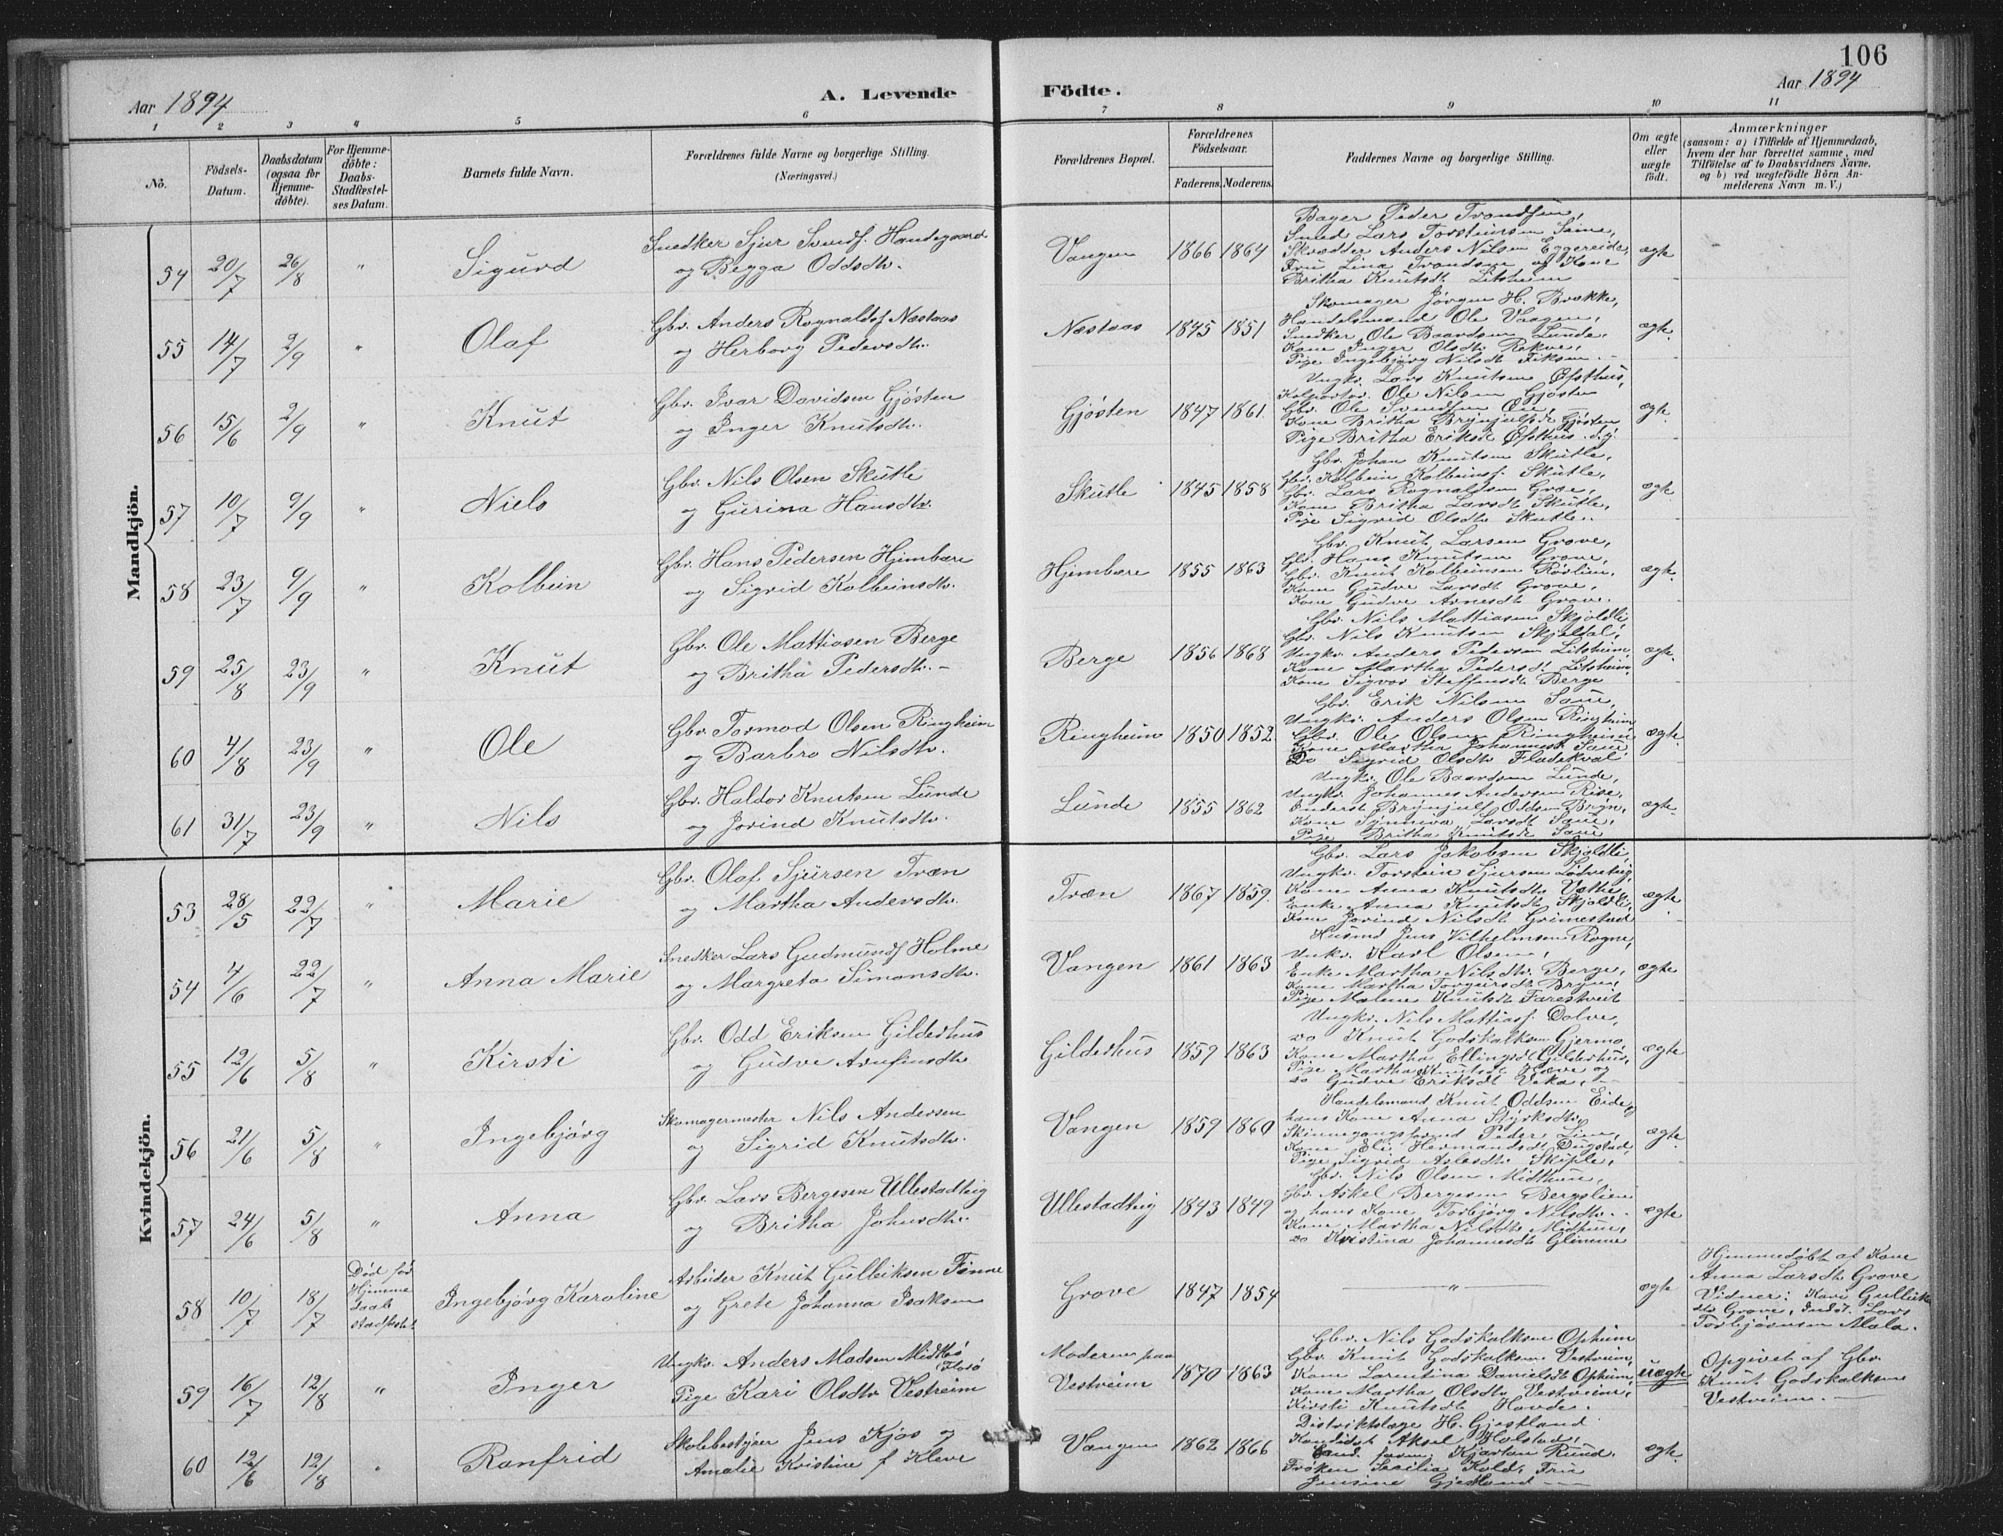 106
Aar 1894
A. Levende
Födte.
Aar 1894
1 2 3 4 5 6 7 8 9 10 11
No.
Födsels-
Datum.
Daabsdatum
(ogsaa for
Hjemme-
döbte).
For Hjemme-
döbte:
Daabs-
Stadfæstel-
ses Datum.
Barnets fulde Navn.
Forældrenes fulde Navne og borgerlige Stilling.
(Næringsvei.)
Forældrenes Bopæl.
Forældrenes
Födselsaar.
Faderens. Moderens.
Faddernes Navne og borgerlige Stilling.
Om ægte
eller
uægte
födt.
Anmærkninger
(saasom: a) i Tilfælde af Hjemmedaab,
hvem der har forrettet samme, med
Tilföielse af to Daabsvidners Navne,
og b) ved uægtefödte Börn An-
melderens Navn m. V.)
Mandkjön.
54 20/7 26/8 " Sigurd
Snedker Sjur Svends. Handegaard
og Begga Oddsdtr.
Vangen 1866 1864
Bager Peder Trondsen,
Smed Lars Torsteinsen Seime,
Skrædder Anders Nilsen Eggereide,
Fru Lina Trondsen og Kone
Britha Knutsdt Litsheim
ægte
55 14/7 2/9 " Olaf
Gbr. Anders Rognaldsf Næstaas
og Herborg Pedersdtr.
Næstaas 1845 1851
Skomager Jörgen H. Brække,
Handelsmand Ole Vangen,
Snedker Ole Baardsen Lunde,
Kone Inger Olsdtr Rokve,
Pige Ingebjörg Nilsdt Tiksen
ægte.
56 15/6 2/9 " Knut
Gbr. Ivar Davidsen Gjösten
og Inger Knutsdtr.
Gjösten 1847 1861.
Ungkr. Lars Knutsen Öfsthus,
Kolportör Ole Nilsen Gjösten
Gbr. Ole Svendsen
Kone Britha Brynjulfsdt Gjösten
Pige Britha Eriksdt Öfsthus
ægte.
57 10/7 9/9 " Niels
Gbr. Nils Olsen Skutle
og Gurina Hansdtr.
Skutle 1845 1858
Gbr. Johan Knutsen Skutle,
Gbr. Kolbein Kolbeinsf. Skutle,
Gbr. Lars Rognaldsen Groe,
Kone Britha Larsdt Skutle,
Pige Sigrid Olsdt Skutle.
ægte.
58 23/7 9/9 " Kolbein
Gbr. Hans Pedersen Hjembære
og Sigrid Kolbeinsdtr.
Hjembære 1855 1863
Gbr. Knut Larsen Grove,
Gbr. Hans Knutsen Grove,
Gbr. Knut Kolbeinsen Rörlien,
Kone Gudve Larsdt Grove,
Kone Gudve Arnesdt Grove.
ægte.
59 25/8 23/9 " Knut
Gbr. Ole Mattiasen Berge
og Britha Pedersdtr.
Berge 1856 1868
Gbr. Nils Mattiasen Skjoldli,
Gbr. Nils Knutsen Skjeltal,
Ungkr. Anders Pedersen Litsheim,
Kone Martha Pedersdt Litsheim,
Kone Sigvor Steffensdt Berge
ægte.
60 4/8 23/9 " Ole
Gbr. Tormod Olsen Ringheim
og Barbro Nilsdtr.
Ringheim 1850 1852.
Gbr. Erik Nilsen Saue,
Ungkr. Anders Olsen Ringheim,
Gbr. Ole Olsen Ringheim
Kone Martha Johannesdt Saue
Do Sigrid Olsdtr Fladekval
ægte.
61 31/7 23/9 " Nils
Gbr. Haldor Knutsen Lunde
og Jorind Knutsdtr.
Lunde 1855 1862
Ungkr. Ole Baardsen Lunde,
Ungkr. Johannes Andersen Rise,
Inderst Brynjulf Oddsen Bryn,
Kone Synneva Larsdt Saue,
Pige Britha Knutsdt Saue
ægte.
Kvindekjön.
53 28/5 22/7 " Marie
Gbr. Olaf Sjursen Træn
og Martha Andersdtr.
Træn 1867 1859.
Gbr. Lars Jakobsen Skjoldli,
Ungkr. Torstein Sjursen Lödveteig,
Kone Anna Knutsdtr Vethe,
Enke Anna Knutsdt Skjoldli,
Kone Jorind Nilsdt Grimestad
ægte.
54 4/6 22/7 " Anna Marie
Snedker Lars Gudmundsf Holme
og Margreta Simonsdtr.
Vangen 1861 1863
Husmd Jens Vilhelmsen Rogne,
Unkr. Karl Olsen,
Enke Martha Nilsdtr Berge,
Kone Martha Torgeirsdt Bryn,
Pige Malene Knutsdt Farestveit
ægte
55 12/6 5/8 " Kirsti
Gbr. Odd Eriksen Gilderhus
og Gudve Arnfinsdtr
Gilderhus 1859 1863
Ungkr. Nils Mattiasf. Dolve,
do Knut Godskalksen Gjermo,
Kone Martha Ellingsdt Gilderhus,
Pige Martha Knutsdt Hæve og
do Gudve Eriksdt Veka.
ægte
56 21/6 5/8 " Ingebjörg
Skomagermester Nils Andersen
og Sigrid Knutsdtr.
Vangen 1859 1860
Handelsmand Knut Oddsen Eide,
hans Kone Anna Styrksdtr,
Peder Lien,
Kone Eli Hermandsdt Dugstad,
Pige Sigrid Aslesdtr Skiple,
ægte.
57 24/6 5/8 " Anna
Gbr. Lars Bergesen Ullestadteig
og Britha Johnsdtr.
Ullestadteig 1843 1849
Gbr. Nils Olsen Midthun,
Gbr Askel Bergesen Bergslien
og hans Kone Torbjörg Nilsdtr.
Kone Martha Nilsdtr Midthun,
do Kristina Johannesdt Glimme
ægte
58 10/7 18/7
Död för
Hjemme
daab
stadfæstet
Ingebjörg Karoline
Arbeider Knut Gulleiksen Finne
og Grete Johanna Isaksen
Grove 1847 1854 "
ægte
Hjemmedöbt af Kone
Anna Larsdt Grove
Vidner: Kari Gulleiks
dtr Grove, Indst. Lars
Torbjörnsen Mala.
59 16/7 12/8 " Inger
Ungkr. Anders Madsen Midtbö
Flosö
Pige Kari Olsdtr Vestreim
Moderen paa
Vestreim 1870 1863
Gbr. Nils Godskalksen Opheim
Gbr. Knut Godskalksen Vestreim,
Kone Larentina Danielsdt Opheim,
Kone Martha Olsdt Vestreim,
Kirsti Knutsdt Havde.
uægte
Opgivet af Gbr.
Knut Godskalksen
Vestreim.
60 12/6 12/8 " Ranfrid
Skolebestyrer Jens Kjos og
Amalie Kristine f Kleve
Vangen 1862 1866
Distriktslæge H. Gjestland
Kandidat Aksel Holstad,
Kjartan Rund,
Fröken Cecilia Kold, Fru
Jensine Gjestland
ægte.